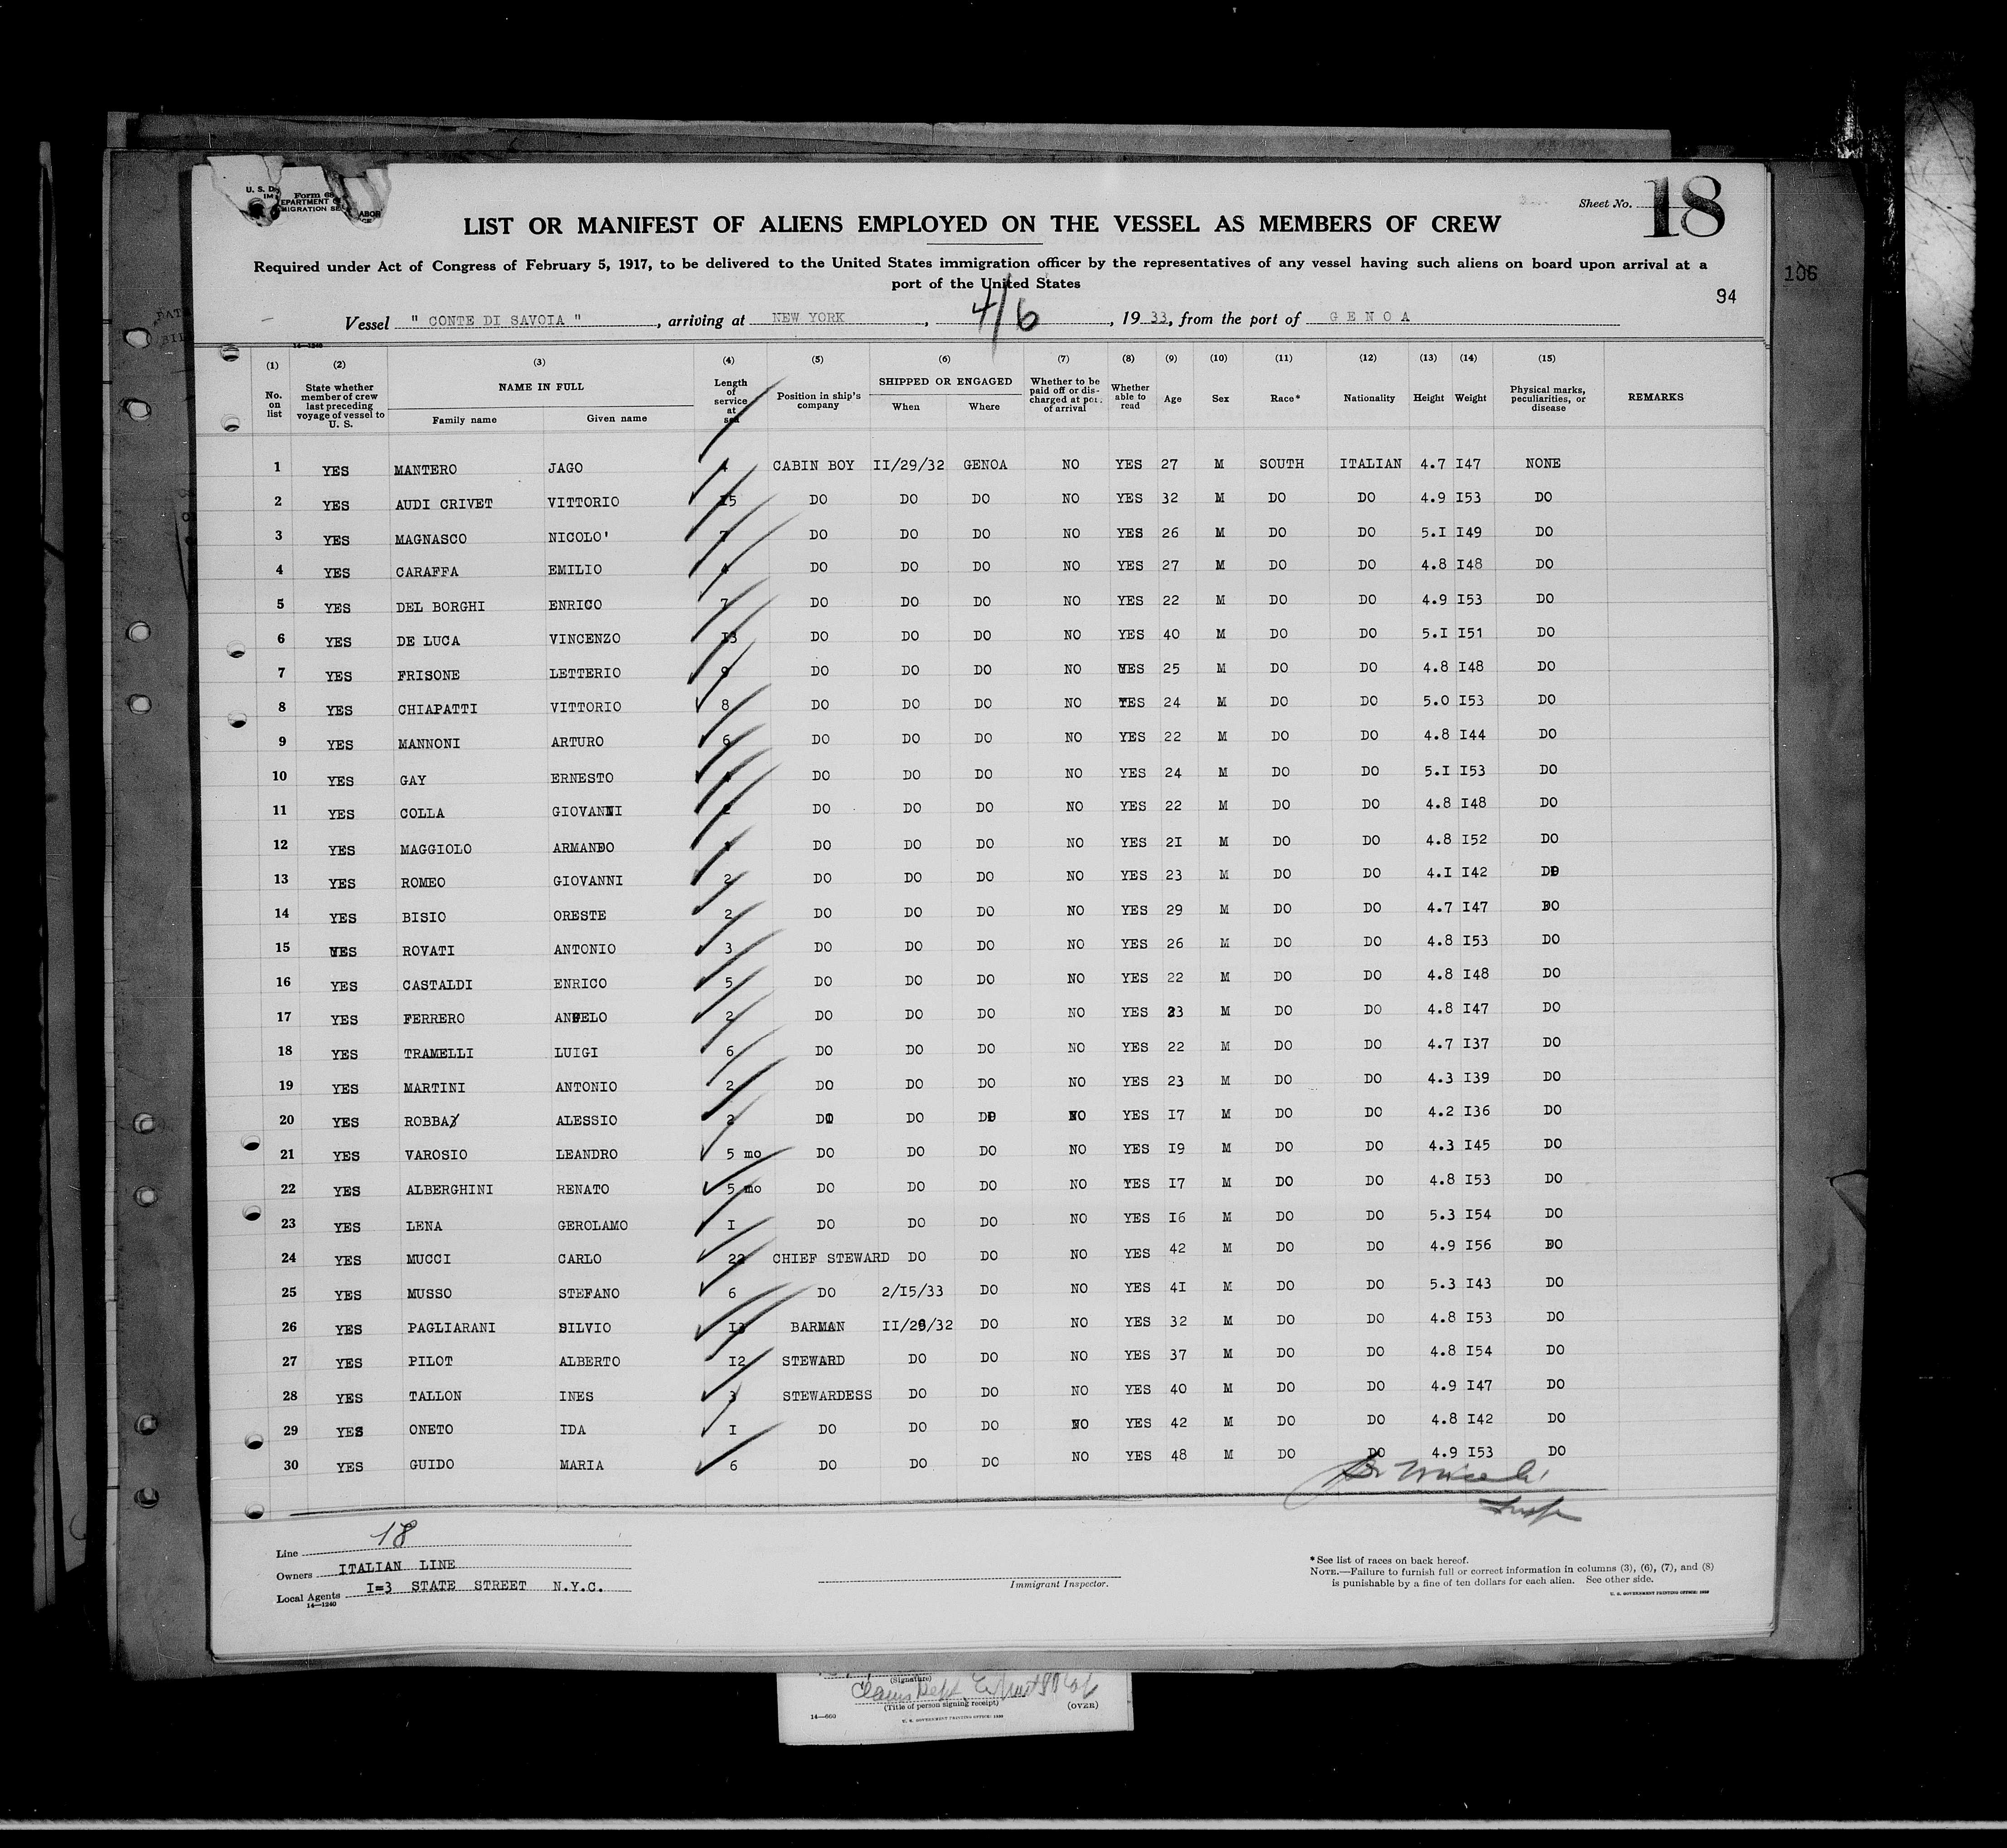 U. S. D Form 68
EPARTMENT O ABOR
MIGRATION SE CE
Sheet No. 18
LIST OR MANIFEST OF ALIENS EMPLOYED ON THE VESSEL AS MEMBERS OF CREW
Required under Act of Congress of February 5, 1917, to be delivered to the United States immigration officer by the representatives of any vessel having such aliens on board upon arrival at a
port of the United States
106
94
Vessel " CONTE DI SAVOIA ", arriving at NEW YORK, 4/6, 19 33, from the port of G E N O A
14—1240
(1) (2) (3) (4) (5) (6) (7) (8) (9) (10) (11) (12) (13) (14) (15)
No. on list State whether member of crew last preceding voyage of vessel to U. S. NAME IN FULL Family name Given name Length of service at sea Position in ship's company SHIPPED OR ENGAGED When Where Whether to be paid off or discharged at port of arrival Whether able to read Age Sex Race* Nationality Height Weight Physical marks, peculiarities, or disease REMARKS
1 YES MANTERO JAGO CABIN BOY II/29/32 GENOA NO YES 27 M SOUTH ITALIAN 4.7 I47 NONE
2 YES AUDI CRIVET VITTORIO I5 DO DO DO NO YES 32 M DO DO 4.9 I53 DO
3 YES MAGNASCO NICOLO' 7 DO DO DO NO YES 26 M DO DO 5.I I49 DO
4 YES CARAFFA EMILIO 4 DO DO DO NO YES 27 M DO DO 4.8 I48 DO
5 YES DEL BORGHI ENRICO 7 DO DO DO NO YES 22 M DO DO 4.9 I53 DO
6 YES DE LUCA VINCENZO I3 DO DO DO NO YES 40 M DO DO 5.I I51 DO
7 YES FRISONE LETTERIO 9 DO DO DO NO YES 25 M DO DO 4.8 I48 DO
8 YES CHIAPATTI VITTORIO 8 DO DO DO NO YES 24 M DO DO 5.0 I53 DO
9 YES MANNONI ARTURO 6 DO DO DO NO YES 22 M DO DO 4.8 I44 DO
10 YES GAY ERNESTO DO DO DO NO YES 24 M DO DO 5.I I53 DO
11 YES COLLA GIOVANNI DO DO DO NO YES 22 M DO DO 4.8 I48 DO
12 YES MAGGIOLO ARMANDO DO DO DO NO YES 2I M DO DO 4.8 I52 DO
13 YES ROMEO GIOVANNI 2 DO DO DO NO YES 23 M DO DO 4.I I42 DO
14 YES BISIO ORESTE 2 DO DO DO NO YES 29 M DO DO 4.7 I47 DO
15 YES ROVATI ANTONIO 3 DO DO DO NO YES 26 M DO DO 4.8 I53 DO
16 YES CASTALDI ENRICO 5 DO DO DO NO YES 22 M DO DO 4.8 I48 DO
17 YES FERRERO ANFELO 2 DO DO DO NO YES 23 M DO DO 4.8 I47 DO
18 YES TRAMELLI LUIGI 6 DO DO DO NO YES 22 M DO DO 4.7 I37 DO
19 YES MARTINI ANTONIO 2 DO DO DO NO YES 23 M DO DO 4.3 I39 DO
20 YES ROBBA ALESSIO 2 DO DO DO NO YES I7 M DO DO 4.2 I36 DO
21 YES VAROSIO LEANDRO 5 mo DO DO DO NO YES I9 M DO DO 4.3 I45 DO
22 YES ALBERGHINI RENATO 5 mo DO DO DO NO YES I7 M DO DO 4.8 I53 DO
23 YES LENA GEROLAMO I DO DO DO NO YES I6 M DO DO 5.3 I54 DO
24 YES MUCCI CARLO 22 CHIEF STEWARD DO DO NO YES 42 M DO DO 4.9 I56 DO
25 YES MUSSO STEFANO 6 DO 2/I5/33 DO NO YES 4I M DO DO 5.3 I43 DO
26 YES PAGLIARANI SILVIO I3 BARMAN II/29/32 DO NO YES 32 M DO DO 4.8 I53 DO
27 YES PILOT ALBERTO I2 STEWARD DO DO NO YES 37 M DO DO 4.8 I54 DO
28 YES TALLON INES 3 STEWARDESS DO DO NO YES 40 M DO DO 4.9 I47 DO
29 YES ONETO IDA I DO DO DO NO YES 42 M DO DO 4.8 I42 DO
30 YES GUIDO MARIA 6 DO DO DO NO YES 48 M DO DO 4.9 I53 DO
Insp
Line 18
Owners ITALIAN LINE
Local Agents I=3 STATE STREET N.Y.C.
14—1240
Immigrant Inspector.
*See list of races on back hereof.
NOTE.—Failure to furnish full or correct information in columns (3), (6), (7), and (8)
is punishable by a fine of ten dollars for each alien. See other side.
U. S. GOVERNMENT PRINTING OFFICE: 1932
(Signature)
Claims Dept
(Title of person signing receipt) (OVER)
14—660 U. S. GOVERNMENT PRINTING OFFICE: 1930